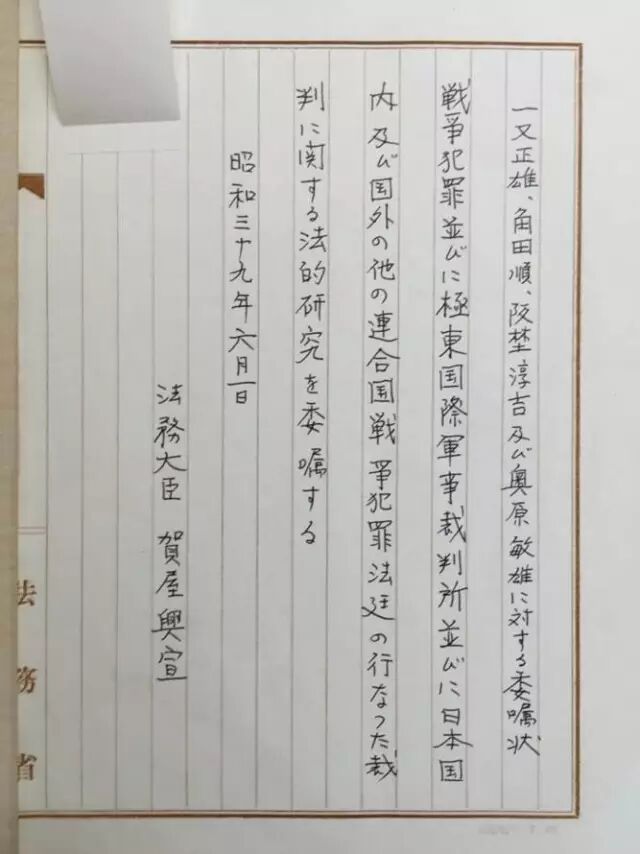 一又正雄、角田順、阪埜淳吉及び奥原敏雄に対する委嘱状
戦争犯罪並びに極東国際軍事裁判所並びに日本国
内及び国外の他の連合国戦争犯罪法廷の行なった裁
判に関する法的研究を委嘱する
昭和三十九年六月一日
法務大臣 賀屋興宣
法務省